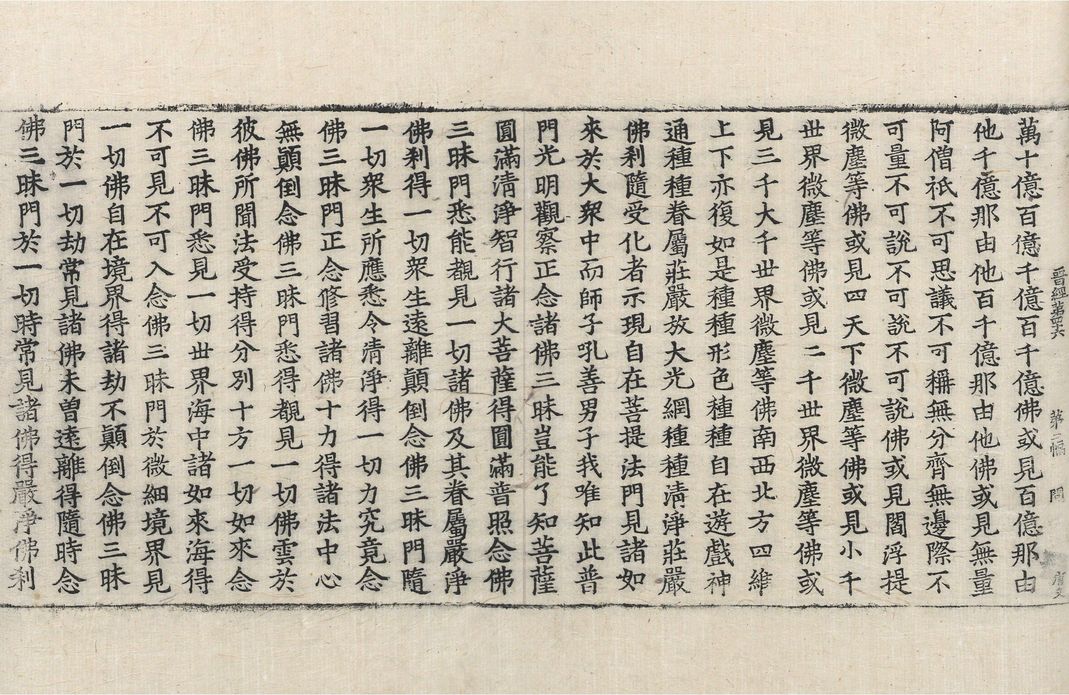 晋經第 六　第二幅
萬十億百億千億百千億佛或見百億那由
他千億那由他百千億那由他佛或見無量
阿僧祇不可思議不可稱無分齊無邊際不
可量不可說不可說不可說佛或見閻浮提
微塵等佛或見四天下微塵等佛或見小千
世界微塵等佛或見二千世界微塵等佛或
見三千大千世界微塵等佛南西北方四維
上下亦復如是種種形色種種自在遊戲神
通種種眷屬莊嚴放大光網種種清淨莊嚴
佛刹隨受化者示現自在菩提法門見諸如
來於大衆中而師子吼善男子我唯知此普
門光明觀察正念諸佛三昧豈能了知菩薩
圓滿清淨智行諸大菩薩得圓滿普照念佛
三昧門悉能覩見一切諸佛及其眷屬嚴淨
佛刹得一切衆生遠離顛倒念佛三昧門隨
一切衆生所應悉令清淨得一切力究竟念
佛三昧門正念修習諸佛十力得諸法中心
無顛倒念佛三昧門悉得覩見一切佛雲於
彼佛所聞法受持得分別十方一切如來念
佛三昧門悉見一切世界海中諸如來海得
不可見不可入念佛三昧門於微細境界見
一切佛自在境界得諸劫不顛倒念佛三昧
門於一切劫常見諸佛未曾遠離得隨時念
佛三昧門於一切時常見諸佛得嚴淨佛刹